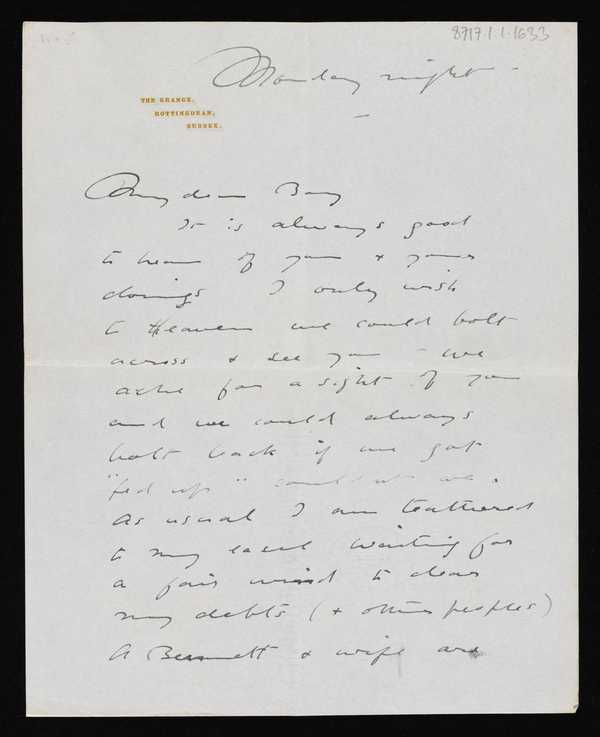 8717/1.1.1633
Monday night -
THE GRANGE,
ROTTINGDEAN,
SUSSEX.
My dear Bay
It is always good
to hear of you & your
doings I only wish
to Heaven we could bolt
across & see you - we
ache for a sight of you
and we could always
bolt back if we got
"fed up" couldn't we.
As usual I am teathered
to my easel waiting for
a fair wind to clear
my debts (& other peoples)
A Bennett & wife are